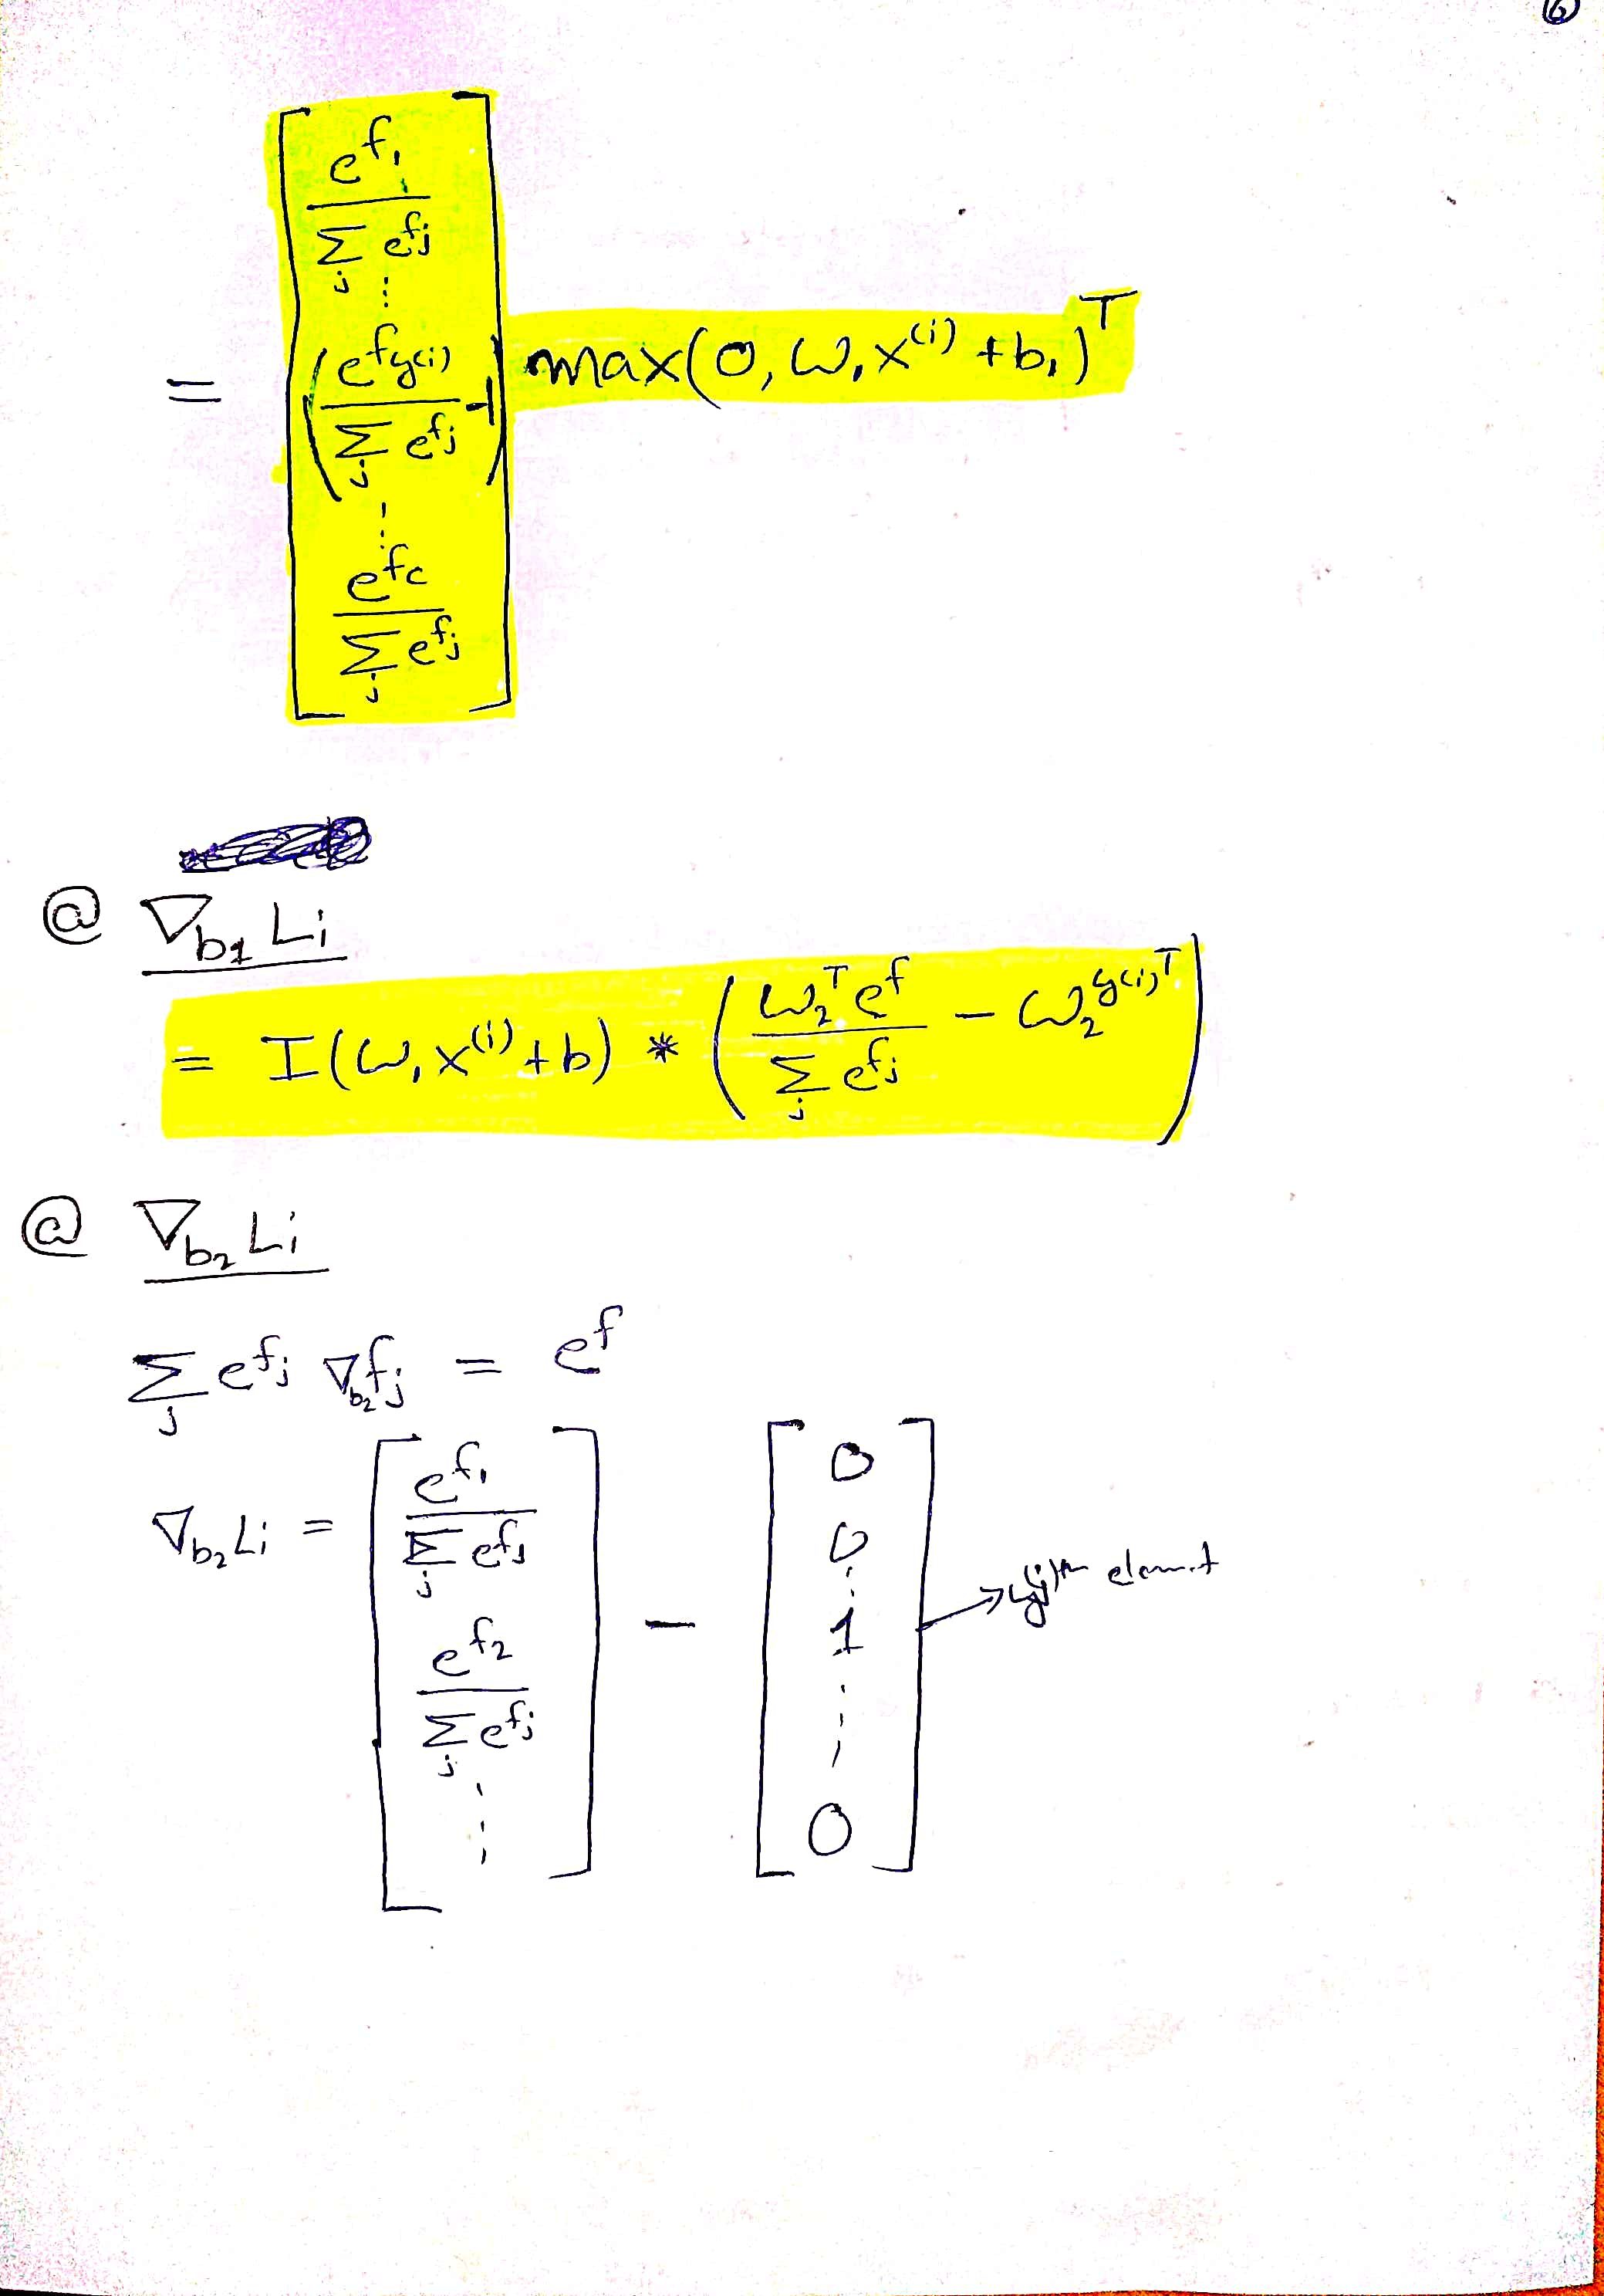 6
= [ e^{f_1} / Σ_j e^{f_j} ⋮ ( e^{f_{y^{(i)}}} / Σ_j e^{f_j} - 1 ) ⋮ e^{f_c} / Σ_j e^{f_j} ] max(0, W_1 x^{(i)} + b_1)^T
@ ∇_{b1} Li
= I(W_1 x^{(i)} + b) * ( W_2^T e^f / Σ_j e^{f_j} − W_2^{y^{(i)T}} )
@ ∇_{b2} Li
Σ_j e^{f_j} ∇_{b2} f_j = e^f
∇_{b2} Li = [ e^{f_1} / Σ_j e^{f_j} e^{f_2} / Σ_j e^{f_j} ⋮ ] − [ 0 0 ⋮ 1 ⋮ 0 ] → y^{(i)th} element